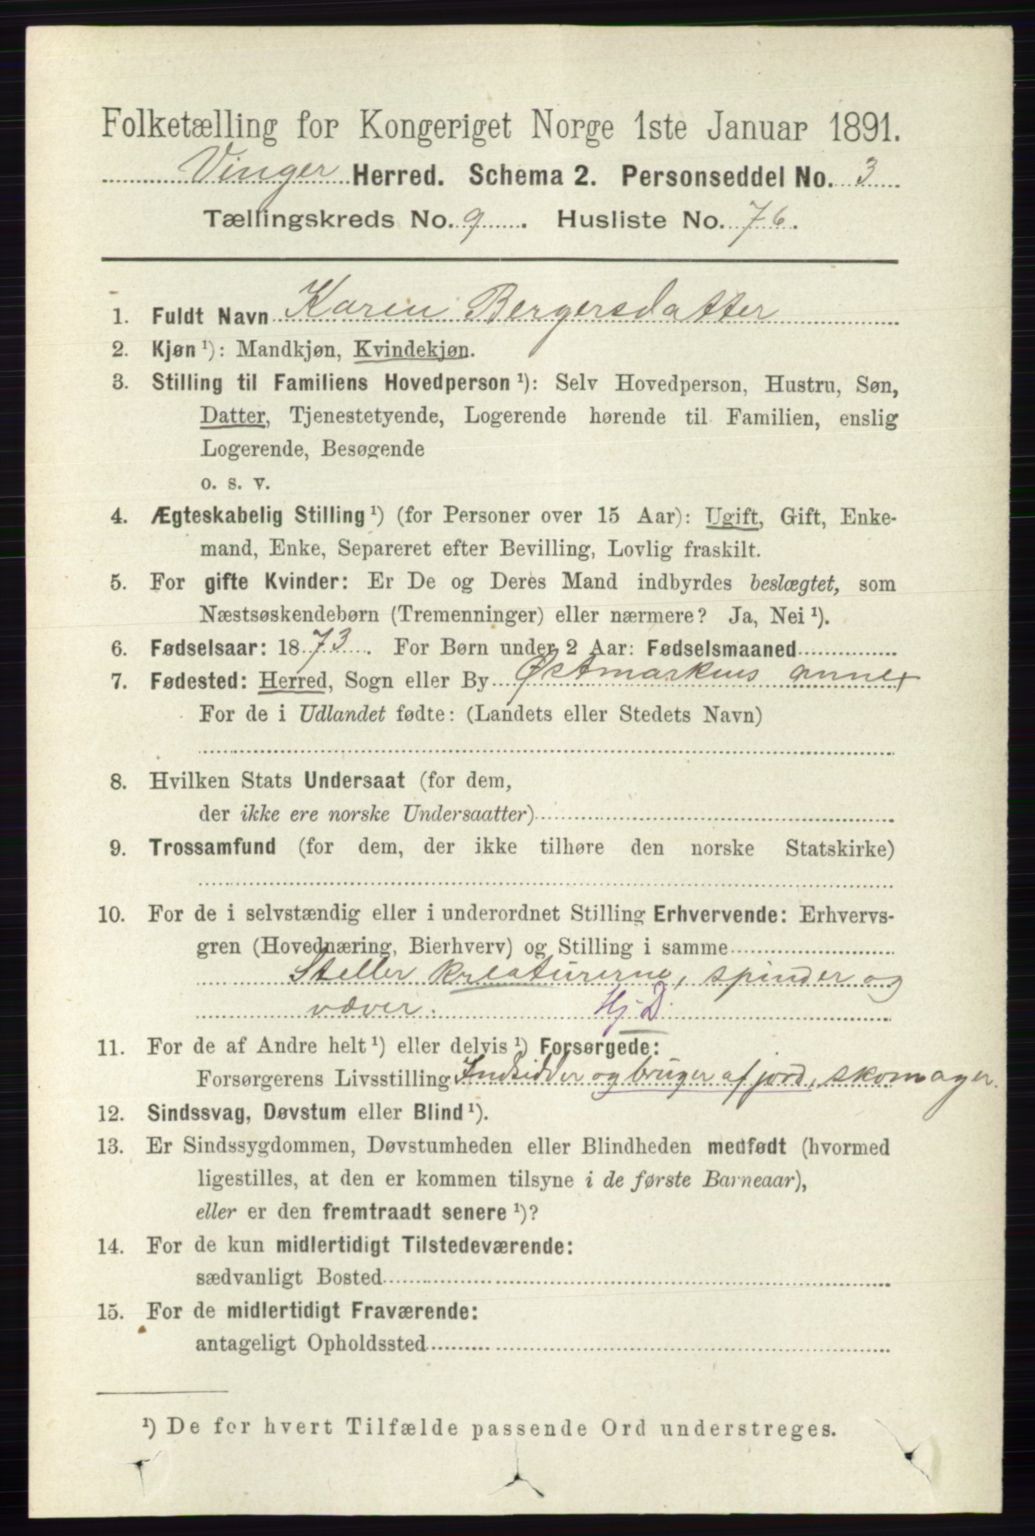 Folketælling for Kongeriget Norge 1ste Januar 1891.
Vinger Herred. Schema 2. Personseddel No. 3
Tællingskreds No. 9. Husliste No. 76.
1. Fuldt Navn Karen Bergersdatter
2. Kjøn ¹): Mandkjøn, Kvindekjøn.
3. Stilling til Familiens Hovedperson ¹): Selv Hovedperson, Hustru, Søn,
Datter, Tjenestetyende, Logerende hørende til Familien, enslig
Logerende, Besøgende
o. s. v.
4. Ægteskabelig Stilling ¹) (for Personer over 15 Aar): Ugift, Gift, Enke-
mand, Enke, Separeret efter Bevilling, Lovlig fraskilt.
5. For gifte Kvinder: Er De og Deres Mand indbyrdes beslægtet, som
Næstsøskendebørn (Tremenninger) eller nærmere? Ja, Nei ¹).
6. Fødselsaar: 1873. For Børn under 2 Aar: Fødselsmaaned
7. Fødested: Herred, Sogn eller By Østmarkens annex
For de i Udlandet fødte: (Landets eller Stedets Navn)
8. Hvilken Stats Undersaat (for dem,
der ikke ere norske Undersaatter)
9. Trossamfund (for dem, der ikke tilhøre den norske Statskirke)
10. For de i selvstændig eller i underordnet Stilling Erhvervende: Erhvervs-
gren (Hovednæring, Bierhverv) og Stilling i samme
Steller kreaturerne, spinder og
væver. Hj. D.
11. For de af Andre helt ¹) eller delvis ¹) Forsørgede:
Forsørgerens Livsstilling Indsidder og bruger af jord, skomager.
12. Sindssvag, Døvstum eller Blind ¹).
13. Er Sindssygdommen, Døvstumheden eller Blindheden medfødt (hvormed
ligestilles, at den er kommen tilsyne i de første Barneaar),
eller er den fremtraadt senere ¹)?
14. For de kun midlertidigt Tilstedeværende:
sædvanligt Bosted
15. For de midlertidigt Fraværende:
antageligt Opholdssted
¹) De for hvert Tilfælde passende Ord understreges.